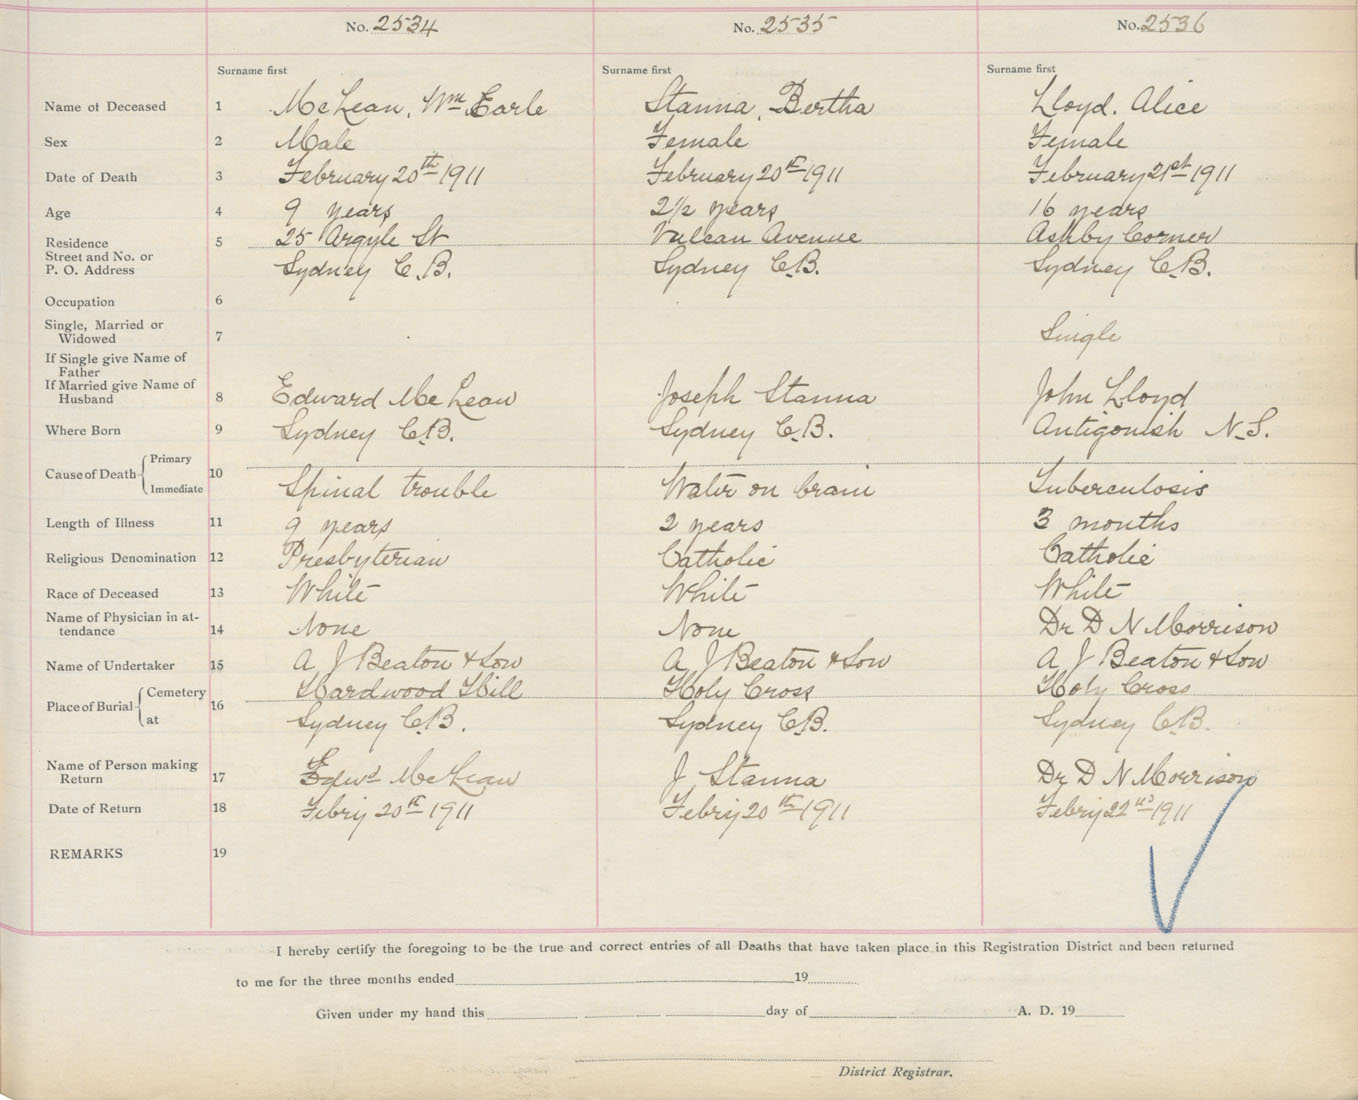 No. 2534 No. 2535 No. 2536
Surname first Surname first Surname first
Name of Deceased 1 McLean, Wm Earle Stanna, Bertha Lloyd. Alice
Sex 2 Male Female Female
Date of Death 3 February 20th 1911 February 20th 1911 February 21st 1911
Age 4 9 years 2½ years 16 years
Residence 5 25 Argyle St Vulcan Avenue Ashby Corner
Street and No. or
P. O. Address Sydney C.B. Sydney C.B. Sydney C.B.
Occupation 6
Single, Married or
Widowed 7 Single
If Single give Name of
Father
If Married give Name of
Husband 8 Edward McLean Joseph Stanna John Lloyd
Where Born 9 Sydney C.B. Sydney C.B. Antigonish N.S.
Cause of Death Primary 10
Immediate Spinal trouble Water on brain Tuberculosis
Length of Illness 11 9 years 2 years 3 months
Religious Denomination 12 Presbyterian Catholic Catholic
Race of Deceased 13 White White White
Name of Physician in at-
tendance 14 None None Dr D N Morrison
Name of Undertaker 15 A J Beaton & Son A J Beaton & Son A J Beaton & Son
Place of Burial Cemetery 16 Hardwood Hill Holy Cross Holy Cross
at Sydney C.B. Sydney C.B. Sydney C.B.
Name of Person making
Return 17 Edwd McLean J Stanna Dr D N Morrison
Date of Return 18 Febry 20th 1911 Febry 20th 1911 Febry 22nd 1911
REMARKS 19
I hereby certify the foregoing to be the true and correct entries of all Deaths that have taken place in this Registration District and been returned
to me for the three months ended 19
Given under my hand this day of A. D. 19
District Registrar.